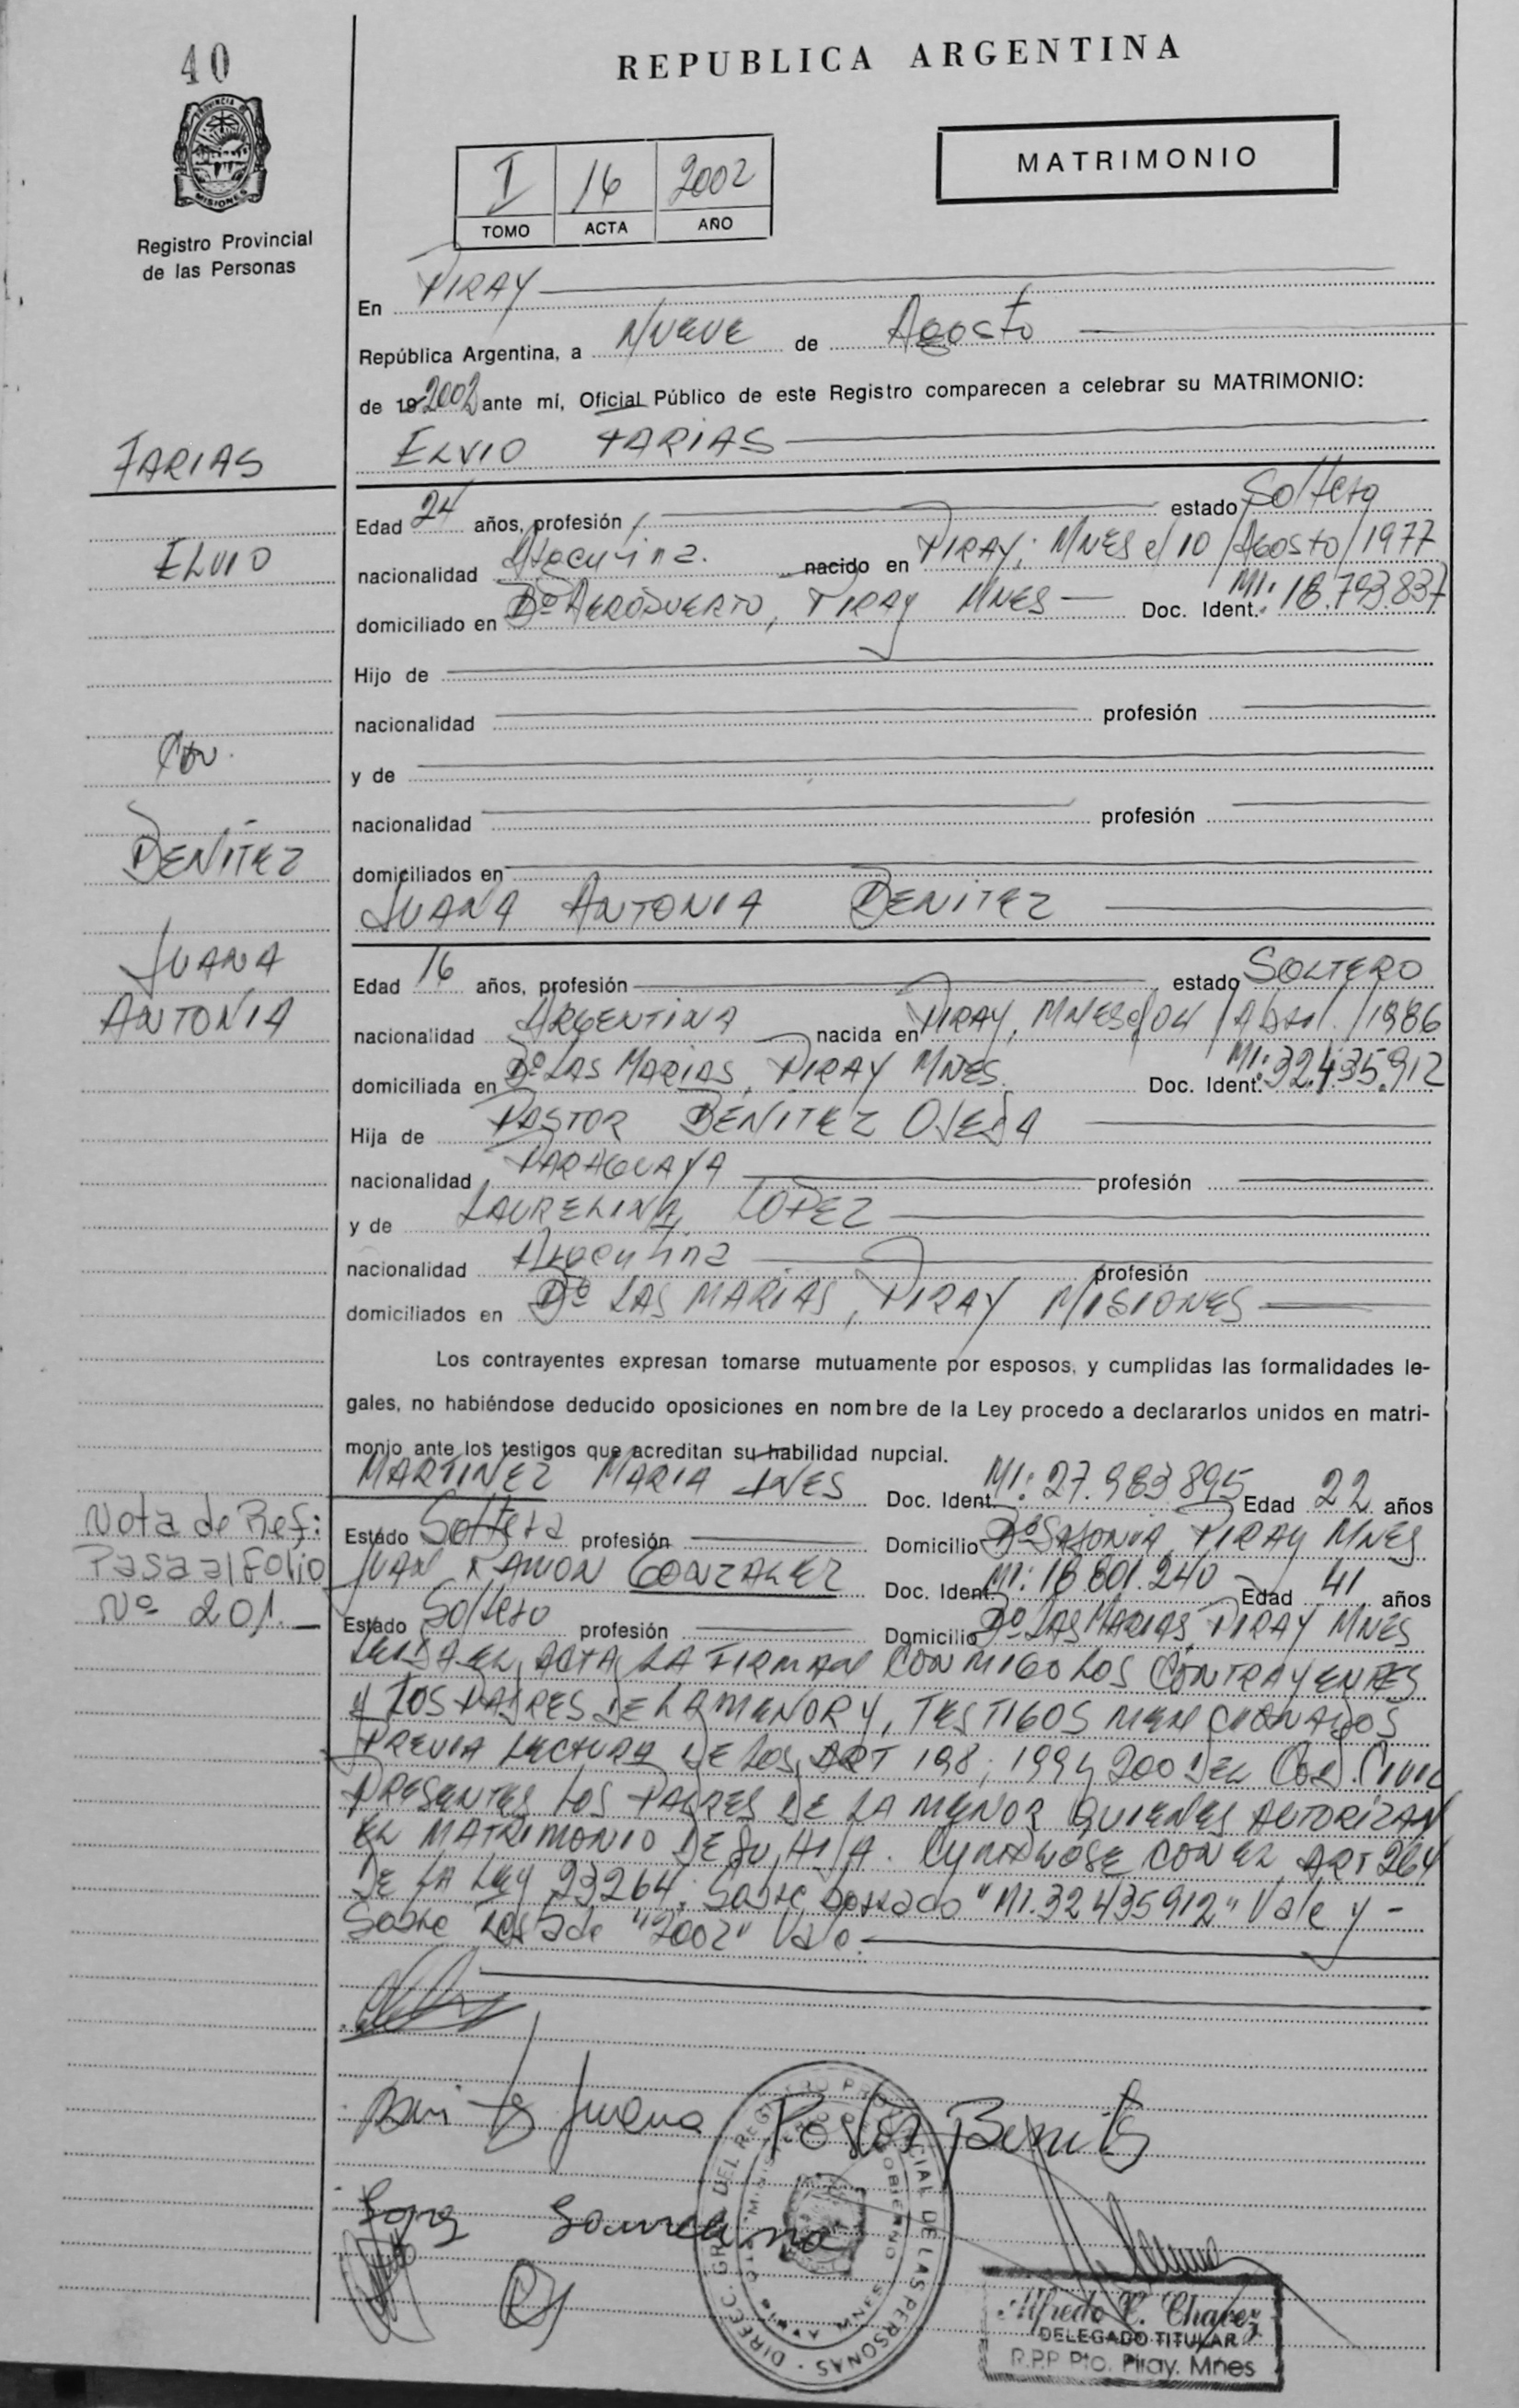 40
REPUBLICA ARGENTINA
PROVINCIA
MISIONES
Registro Provincial
de las Personas
MATRIMONIO
I 16 2002
TOMO ACTA AÑO
En PIRAY
República Argentina, a NUEVE de Agosto
de 19 2002 ante mí, Oficial Público de este Registro comparecen a celebrar su MATRIMONIO:
FARIAS
ELVIO FARIAS
Edad 24 años, profesión estado Soltero
ELVIO
nacionalidad Argentina. nacido en PIRAY, MNES el 10/Agosto/1977
domiciliado en Bº AEROPUERTO, PIRAY MNES Doc. Ident. MI: 18.793.837
Hijo de
nacionalidad profesión
Con.
y de
nacionalidad profesión
BENITEZ
domiciliados en
JUANA ANTONIA BENITEZ
JUANA
ANTONIA
Edad 16 años, profesión estado SOLTERO
nacionalidad ARGENTINA nacida en PIRAY, MNES el 04/Abril./1986
domiciliada en Bº LAS MARIAS, PIRAY MNES. Doc. Ident. MI: 32.435.912
Hija de PASTOR BENITEZ OJEDA
nacionalidad PARAGUAYA profesión
y de LAURELINA LOPEZ
nacionalidad Argentina profesión
domiciliados en Bº LAS MARIAS, PIRAY MISIONES
Los contrayentes expresan tomarse mutuamente por esposos, y cumplidas las formalidades le-
gales, no habiéndose deducido oposiciones en nombre de la Ley procedo a declararlos unidos en matri-
monio ante los testigos que acreditan su habilidad nupcial.
MARTINEZ MARIA INES Doc. Ident. MI: 27.983.895 Edad 22 años
Nota de Ref:
Pasa al Folio
Nº 201.
Estado Soltera profesión Domicilio Bº PIRAY MNES
JUAN RAMON GONZALEZ Doc. Ident. MI: 18.801.240 Edad 41 años
Estado Soltero profesión Domicilio Bº LAS MARIAS, PIRAY MNES
LEIDA EL ACTA, LA FIRMAN CONMIGO LOS CONTRAYENTES
Y LOS PADRES DE LA MENOR Y, TESTIGOS MENCIONADOS
PREVIA LECTURA DE LOS ART 198, 199 y 200 DEL COD. CIVIL
PRESENTES LOS PADRES DE LA MENOR QUIENES AUTORIZAN
EL MATRIMONIO DE SU HIJA. CON EL ART 264
DE LA LEY 23264. Sobre borrado "MI.32435912" Vale y -
Sobre "2002" Vale.
Juana Pastor Benitez
DIREC. GRAL. DEL REGISTRO PROVINCIAL DE LAS PERSONAS
Alfredo C. Chavez
DELEGADO TITULAR
R.P.P Pto. Piray. Mnes